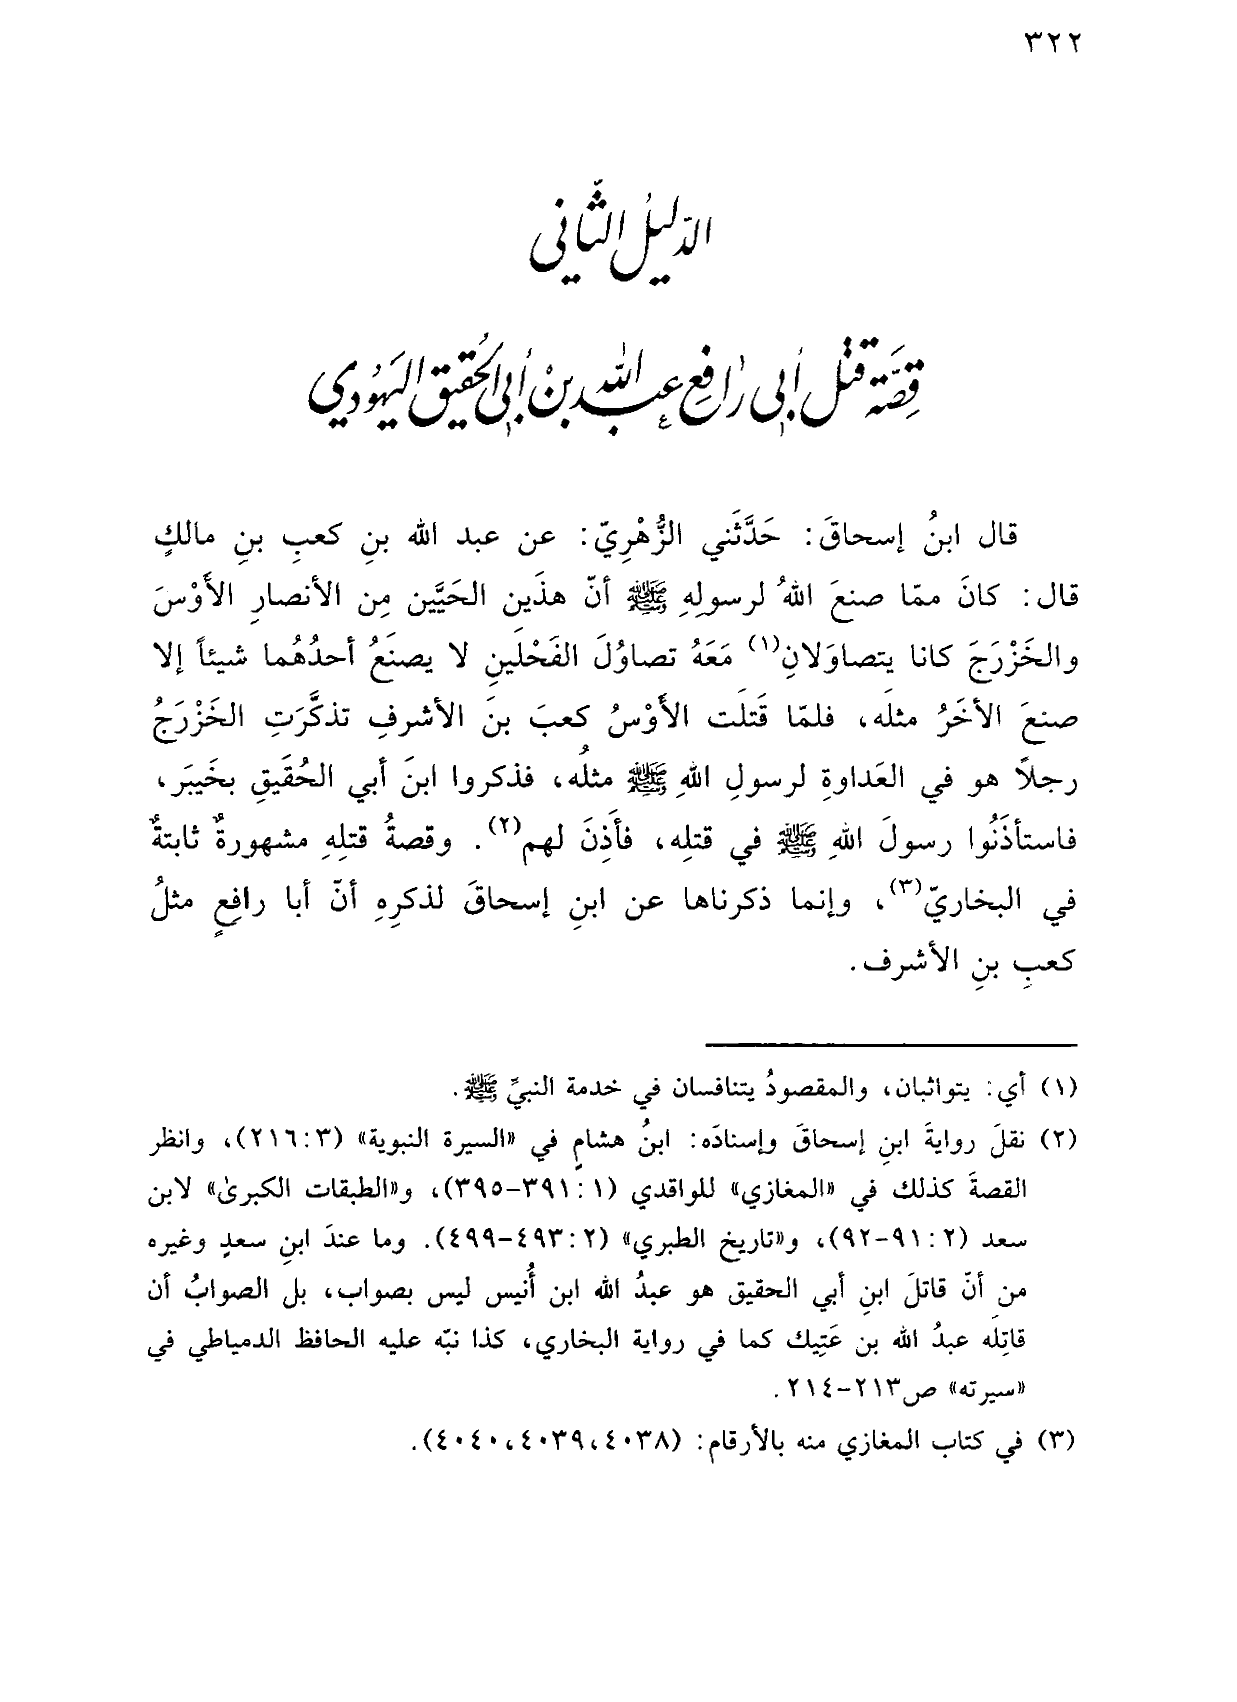 ٣٢٢
الدّليلُ الثّاني
قِصّة قتْل أبي رافِعِ عبد الله بنْ أبي الحُقيق اليَهُودي
قال ابنُ إسحاقَ: حَدَّثَني الزُّهْرِيّ: عن عبد الله بنِ كعبِ بنِ مالكٍ
قال: كانَ ممّا صنعَ اللهُ لرسولِهِ ﷺ أنّ هذَين الحَيَّين مِن الأنصارِ الأَوْسَ
والخَزْرَجَ كانا يتصاوَلانِ(١) مَعَهُ تصاوُلَ الفَحْلَينِ لا يصنَعُ أحدُهُما شيئاً إلا
صنعَ الأخَرُ مثلَه، فلمّا قَتلَت الأَوْسُ كعبَ بنَ الأشرفِ تذكَّرَتِ الخَزْرَجُ
رجلاً هو في العَداوةِ لرسولِ اللهِ ﷺ مثلُه، فذكروا ابنَ أبي الحُقَيقِ بخَيبَر،
فاستأذَنُوا رسولَ اللهِ ﷺ في قتلِه، فأَذِنَ لهم(٢). وقصةُ قتلِهِ مشهورةٌ ثابتةٌ
في البخاريّ(٣)، وإنما ذكرناها عن ابنِ إسحاقَ لذكرِهِ أنّ أبا رافِعٍ مثلُ
كعبِ بنِ الأشرف.
(١) أي: يتواثبان، والمقصودُ يتنافسان في خدمة النبيِّ ﷺ.
(٢) نقلَ روايةَ ابنِ إسحاقَ وإسنادَه: ابنُ هشامٍ في «السيرة النبوية» (٣:٢١٦)، وانظر
القصةَ كذلك في «المغازي» للواقدي (١:٣٩١-٣٩٥)، و«الطبقات الكبرىٰ» لابن
سعد (٢:٩١-٩٢)، و«تاريخ الطبري» (٢:٤٩٣-٤٩٩). وما عندَ ابنِ سعدٍ وغيره
من أنّ قاتلَ ابنِ أبي الحقيق هو عبدُ الله ابن أُنيس ليس بصواب، بل الصوابُ أن
قاتِلَه عبدُ الله بن عَتِيك كما في رواية البخاري، كذا نبّه عليه الحافظ الدمياطي في
«سيرته» ص٢١٣-٢١٤.
(٣) في كتاب المغازي منه بالأرقام: (٤٠٣٨،٤٠٣٩،٤٠٤٠).